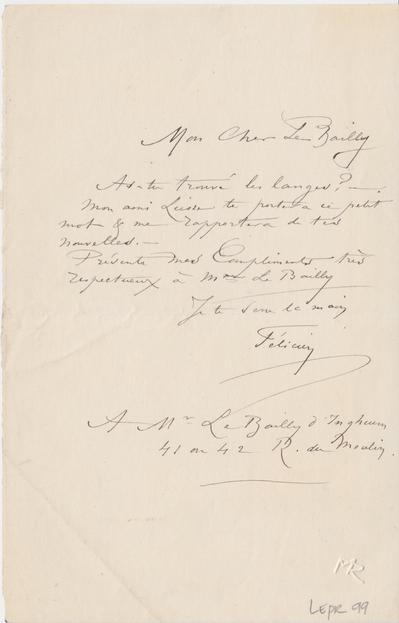 Mon Cher Le Bailly
As-tu trouvé les langes? —
Mon ami Liesse te portera ce petit
mot & me rapportera de tes
nouvelles. —
Présente mes Compliments très
respectueux à Mme Le Bailly
Je te serre la main
Félicien
A Mr Le Bailly d'Inghuem
41 ou 42 R. du Moulin.
MR
LEPR 99